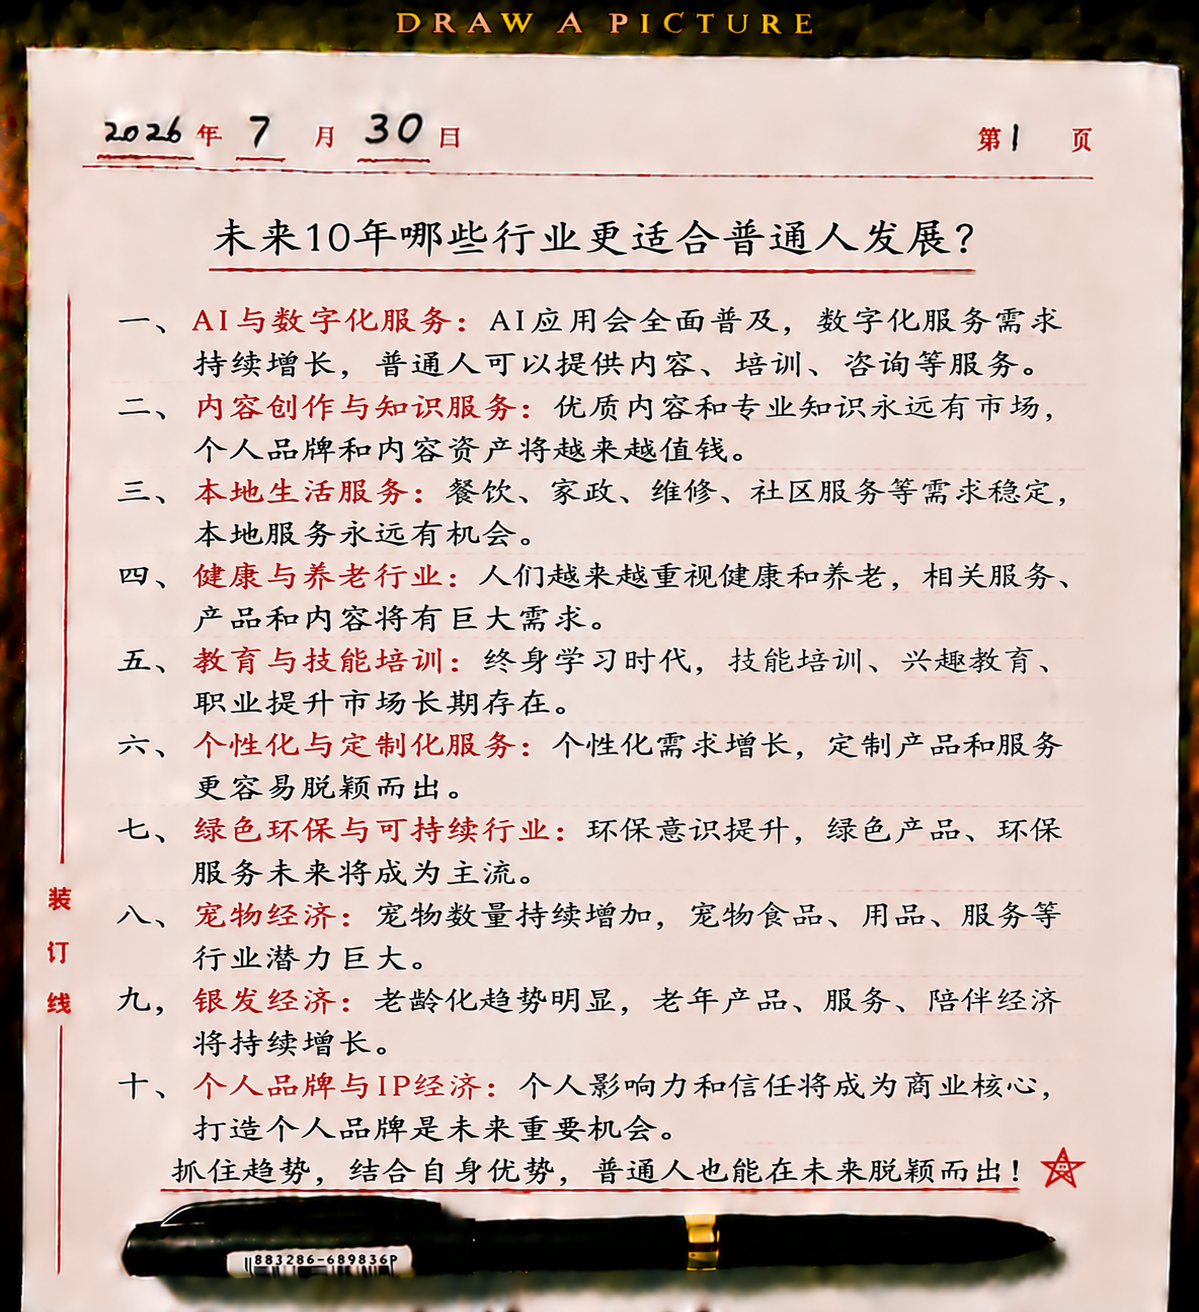 DRAW A PICTURE
2026年 7 月 30 日 第1 页
未来10年哪些行业更适合普通人发展？
一、AI与数字化服务：AI应用会全面普及，数字化服务需求
持续增长，普通人可以提供内容、培训、咨询等服务。
二、内容创作与知识服务：优质内容和专业知识永远有市场，
个人品牌和内容资产将越来越值钱。
三、本地生活服务：餐饮、家政、维修、社区服务等需求稳定，
本地服务永远有机会。
四、健康与养老行业：人们越来越重视健康和养老，相关服务、
产品和内容将有巨大需求。
五、教育与技能培训：终身学习时代，技能培训、兴趣教育、
职业提升市场长期存在。
六、个性化与定制化服务：个性化需求增长，定制产品和服务
更容易脱颖而出。
七、绿色环保与可持续行业：环保意识提升，绿色产品、环保
服务未来将成为主流。
八、宠物经济：宠物数量持续增加，宠物食品、用品、服务等
行业潜力巨大。
九，银发经济：老龄化趋势明显，老年产品、服务、陪伴经济
将持续增长。
十、个人品牌与IP经济：个人影响力和信任将成为商业核心，
打造个人品牌是未来重要机会。
抓住趋势，结合自身优势，普通人也能在未来脱颖而出！
装订线
883286-689836P